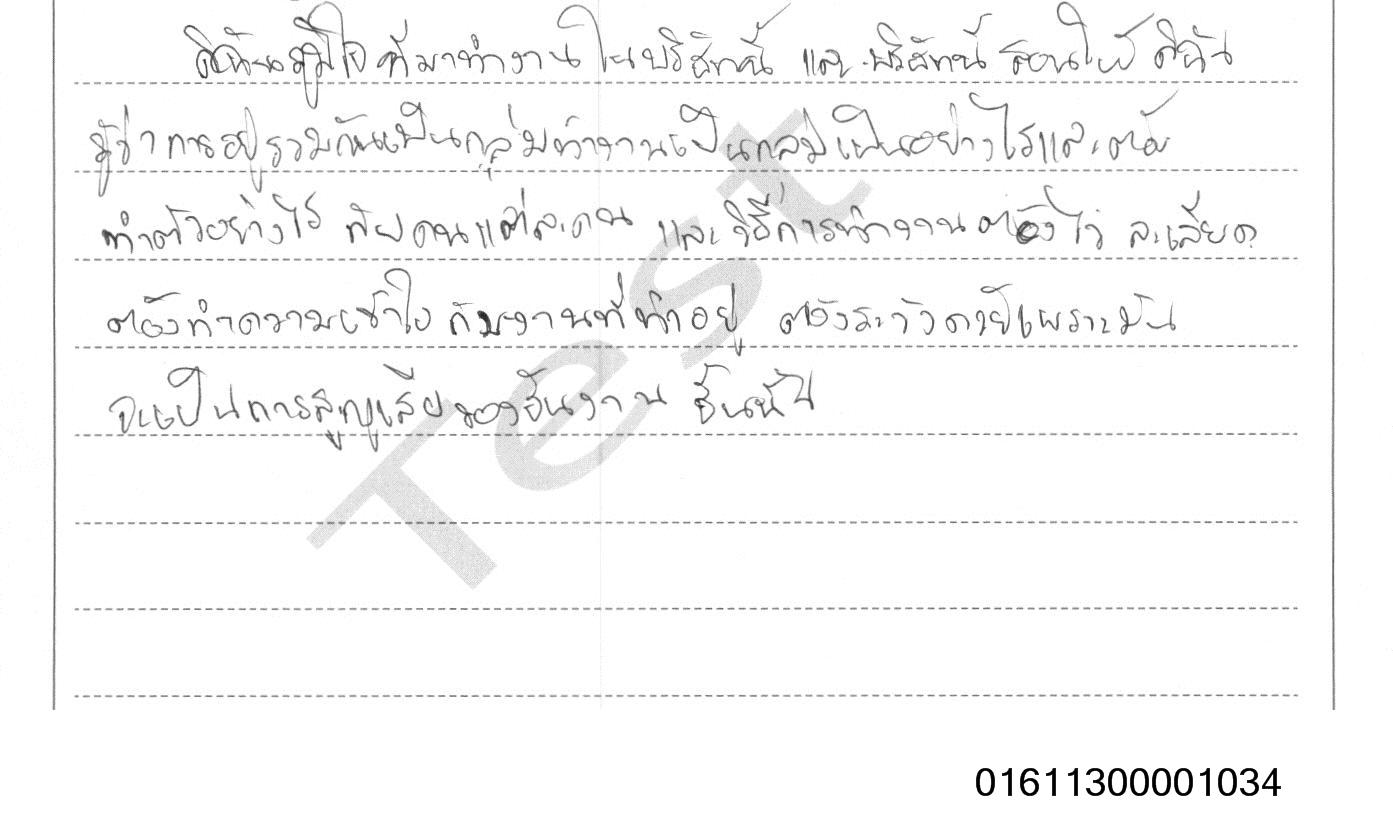 ดิฉันภูมิใจที่มาทำงานในบริษัทนี้ และบริษัทนี้สอนให้ดิฉัน
รู้ว่าการอยู่รวมกันเป็นกลุ่มทำงานเป็นกลุ่มเป็นอย่างไรและต้อง
ทำตัวอย่างไร กับคนแต่ละคน และวิธีการทำงานต้องไว ละเอียด
ต้องทำความเข้าใจ กับงานที่ทำอยู่ ต้องระวังด้วยเพราะมัน
จะเป็นการสูญเสียของชิ้นงาน ชิ้นนั้น
Test
01611300001034